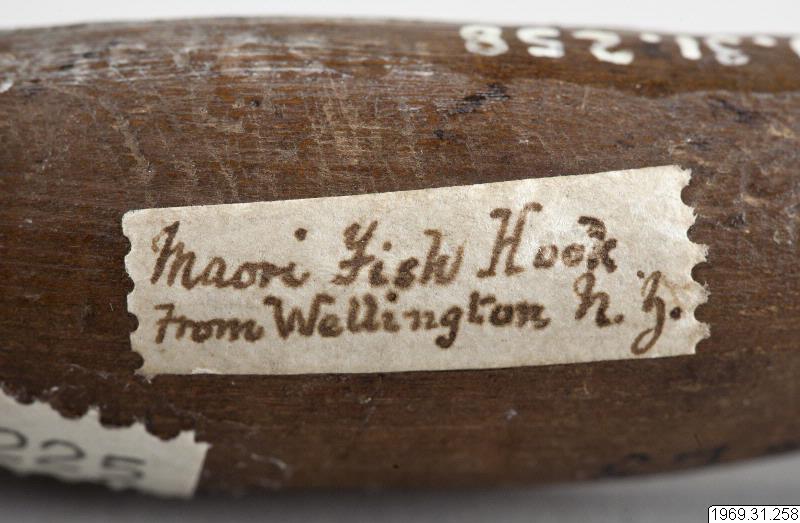 .31.258
Maori Fish Hook
From Wellington N. Z.
225
1969.31.258